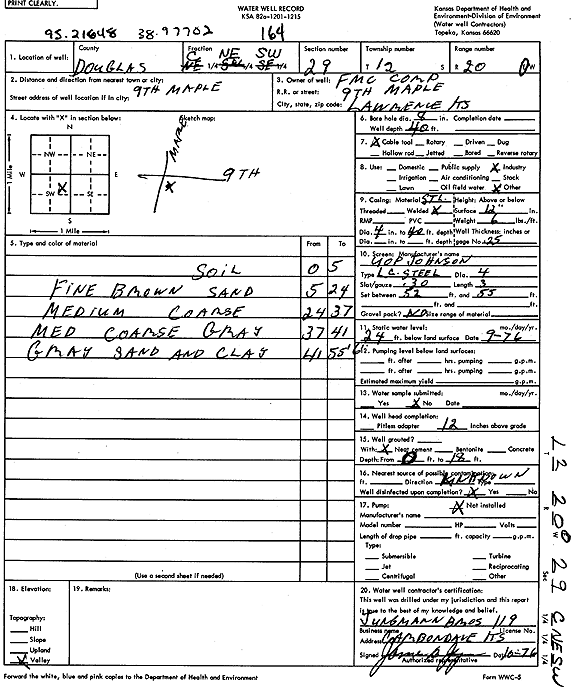 PRINT CLEARLY.
WATER WELL RECORD
KSA 82a-1201-1215
Kansas Department of Health and
Environment-Division of Environment
(Water well Contractors)
Topeka, Kansas 66620
95.21648 38.97702
164
1. Location of well:
County
DOUGLAS
Fraction
C NE SW
1/4 1/4 1/4
Section number
29
Township number
T 12 S
Range number
R 20 E W
2. Distance and direction from nearest town or city:
9TH MAPLE
Street address of well location if in city:
3. Owner of well: FMC COMP
R.R. or street: 9TH MAPLE
City, state, zip code: LAWRENCE KS
4. Locate with "X" in section below:
Sketch map:
N
NW NE
W E
SW SE
S
1 Mile
1 Mile
X
MAPLE
9TH
X
5. Type and color of material
From To
SOIL 0 5
FINE BROWN SAND 5 24
MEDIUM COARSE 24 37
MED COARSE GRAY 37 41
GRAY SAND AND CLAY 41 55'6"
(Use a second sheet if needed)
6. Bore hole dia. 8 in. Completion date
Well depth 40 ft.
7. X Cable tool Rotary Driven Dug
Hollow rod Jetted Bored Reverse rotary
8. Use: Domestic Public supply X Industry
Irrigation Air conditioning Stock
Lawn Oil field water X Other
9. Casing: Material STL. Height: Above or below
Threaded Welded X Surface 12" in.
RMP PVC Weight 6 lbs./ft.
Dia. 4 in. to 40 ft. depth Wall Thickness: inches or
Dia. in. to ft. depth gage No. .25
10. Screen: Manufacturer's name
UOP JOHNSON
Type L.C. STEEL Dia. 4
Slot/gauze .30 Length 3
Set between 52 ft. and 55 ft.
ft. and ft.
Gravel pack? NO Size range of material
11. Static water level: mo./day/yr.
24 ft. below land surface Date 9-76
12. Pumping level below land surfaces:
ft. after hrs. pumping g.p.m.
ft. after hrs. pumping g.p.m.
Estimated maximum yield g.p.m.
13. Water sample submitted: mo./day/yr.
Yes X No Date
14. Well head completion:
Pitless adapter 12 Inches above grade
15. Well grouted?
With: X Neat cement Bentonite Concrete
Depth: From 0 ft. to 18 ft.
16. Nearest source of possible contamination:
ft. Direction Type
Well disinfected upon completion? X Yes No
17. Pump: X Not installed
Manufacturer's name
Model number HP Volts
Length of drop pipe ft. capacity g.p.m.
Type:
Submersible Turbine
Jet Reciprocating
Centrifugal Other
18. Elevation:
19. Remarks:
Topography:
Hill
Slope
Upland
X Valley
20. Water well contractor's certification:
This well was drilled under my jurisdiction and this report
is true to the best of my knowledge and belief.
JUNGMANN BROS 119
Business name License No.
Address CARBONDALE KS
Signed Date 10-76
Authorized representative
Forward the white, blue and pink copies to the Department of Health and Environment
Form WWC-5
T 12 R 20 E W Sec 29 C NE SW
1/4 1/4 1/4